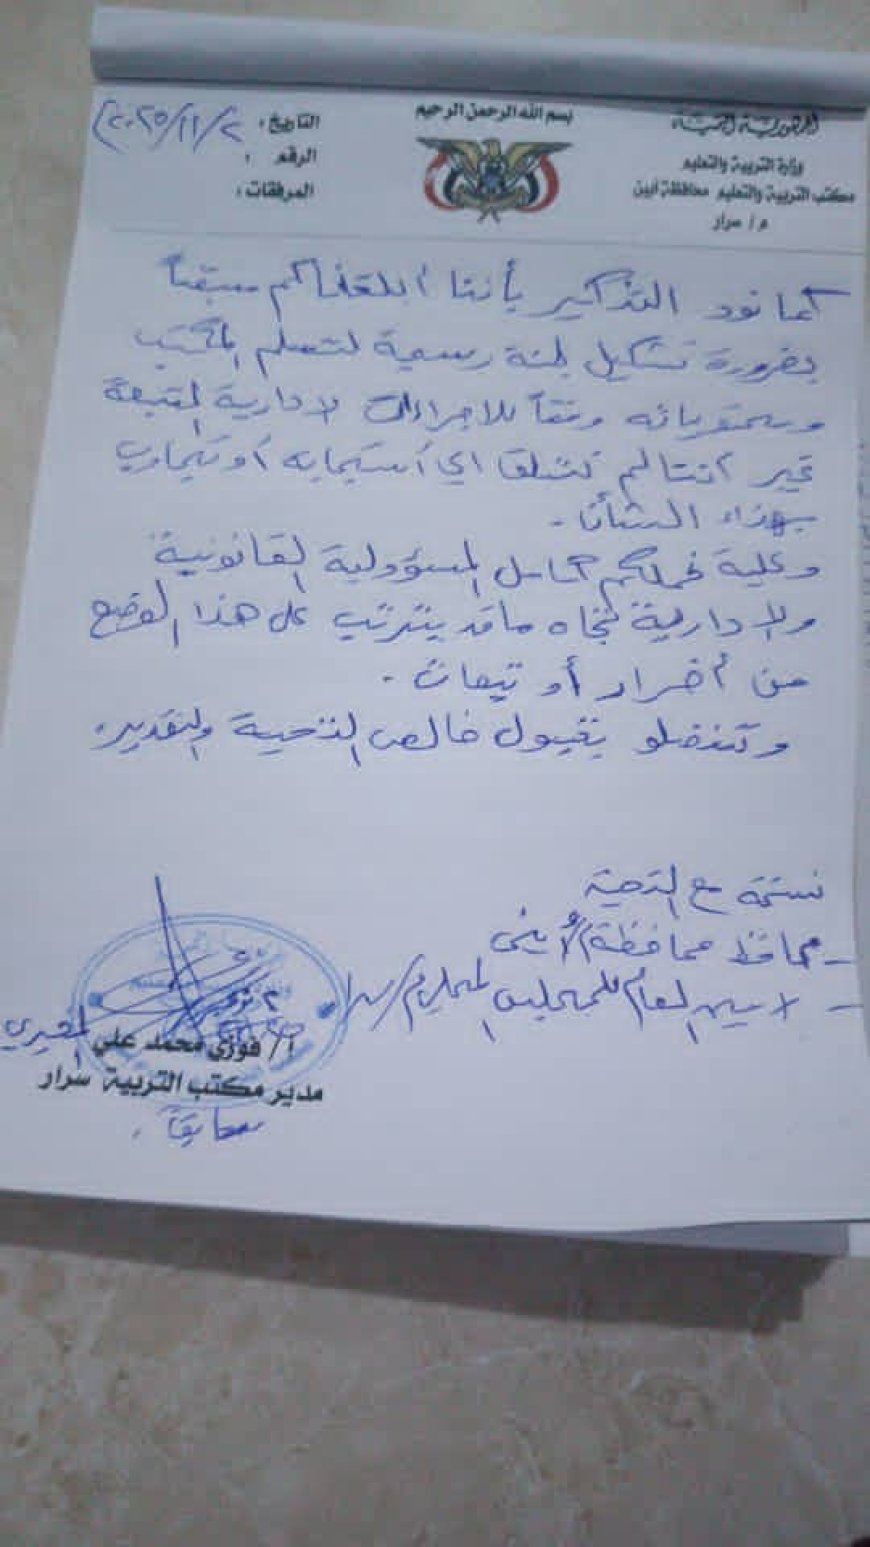 الجمهورية اليمنية
وزارة التربية والتعليم
مكتب التربية والتعليم محافظة أبين
م / سرار
بسم الله الرحمن الرحيم
التاريخ: ٢٠٢٥/١١/٢
الرقم :
المرفقات:
كما نود التذكير بأننا أبلغناكم مسبقاً
بضرورة تشكيل لجنة رسمية لتسلم المكتب
ومحتوياته وفقاً للاجراءات الادارية المتبعة
غير أننا لم نتلق اي أستجابه أو تجاوب
بهذا الشأن.
وعلية نحملكم كامل المسؤولية القانونية
والادارية تجاه ما قد يترتب على هذا الوضع
من أضرار أو تبعات.
وتفضلو بقبول خالص التحية والتقدير.
نسخة مع التحية
- محافظ محافظة أبين
- الامين العام للمجلس المحلي م/سرار
أ/ فوزي محمد علي
مدير مكتب التربية سرار
سابقاً.